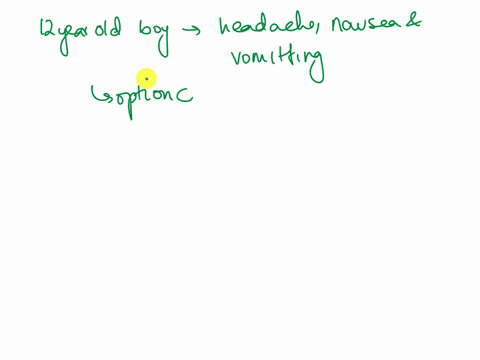 12 year old boy → headache, nausea &
vomitting
↳ option C